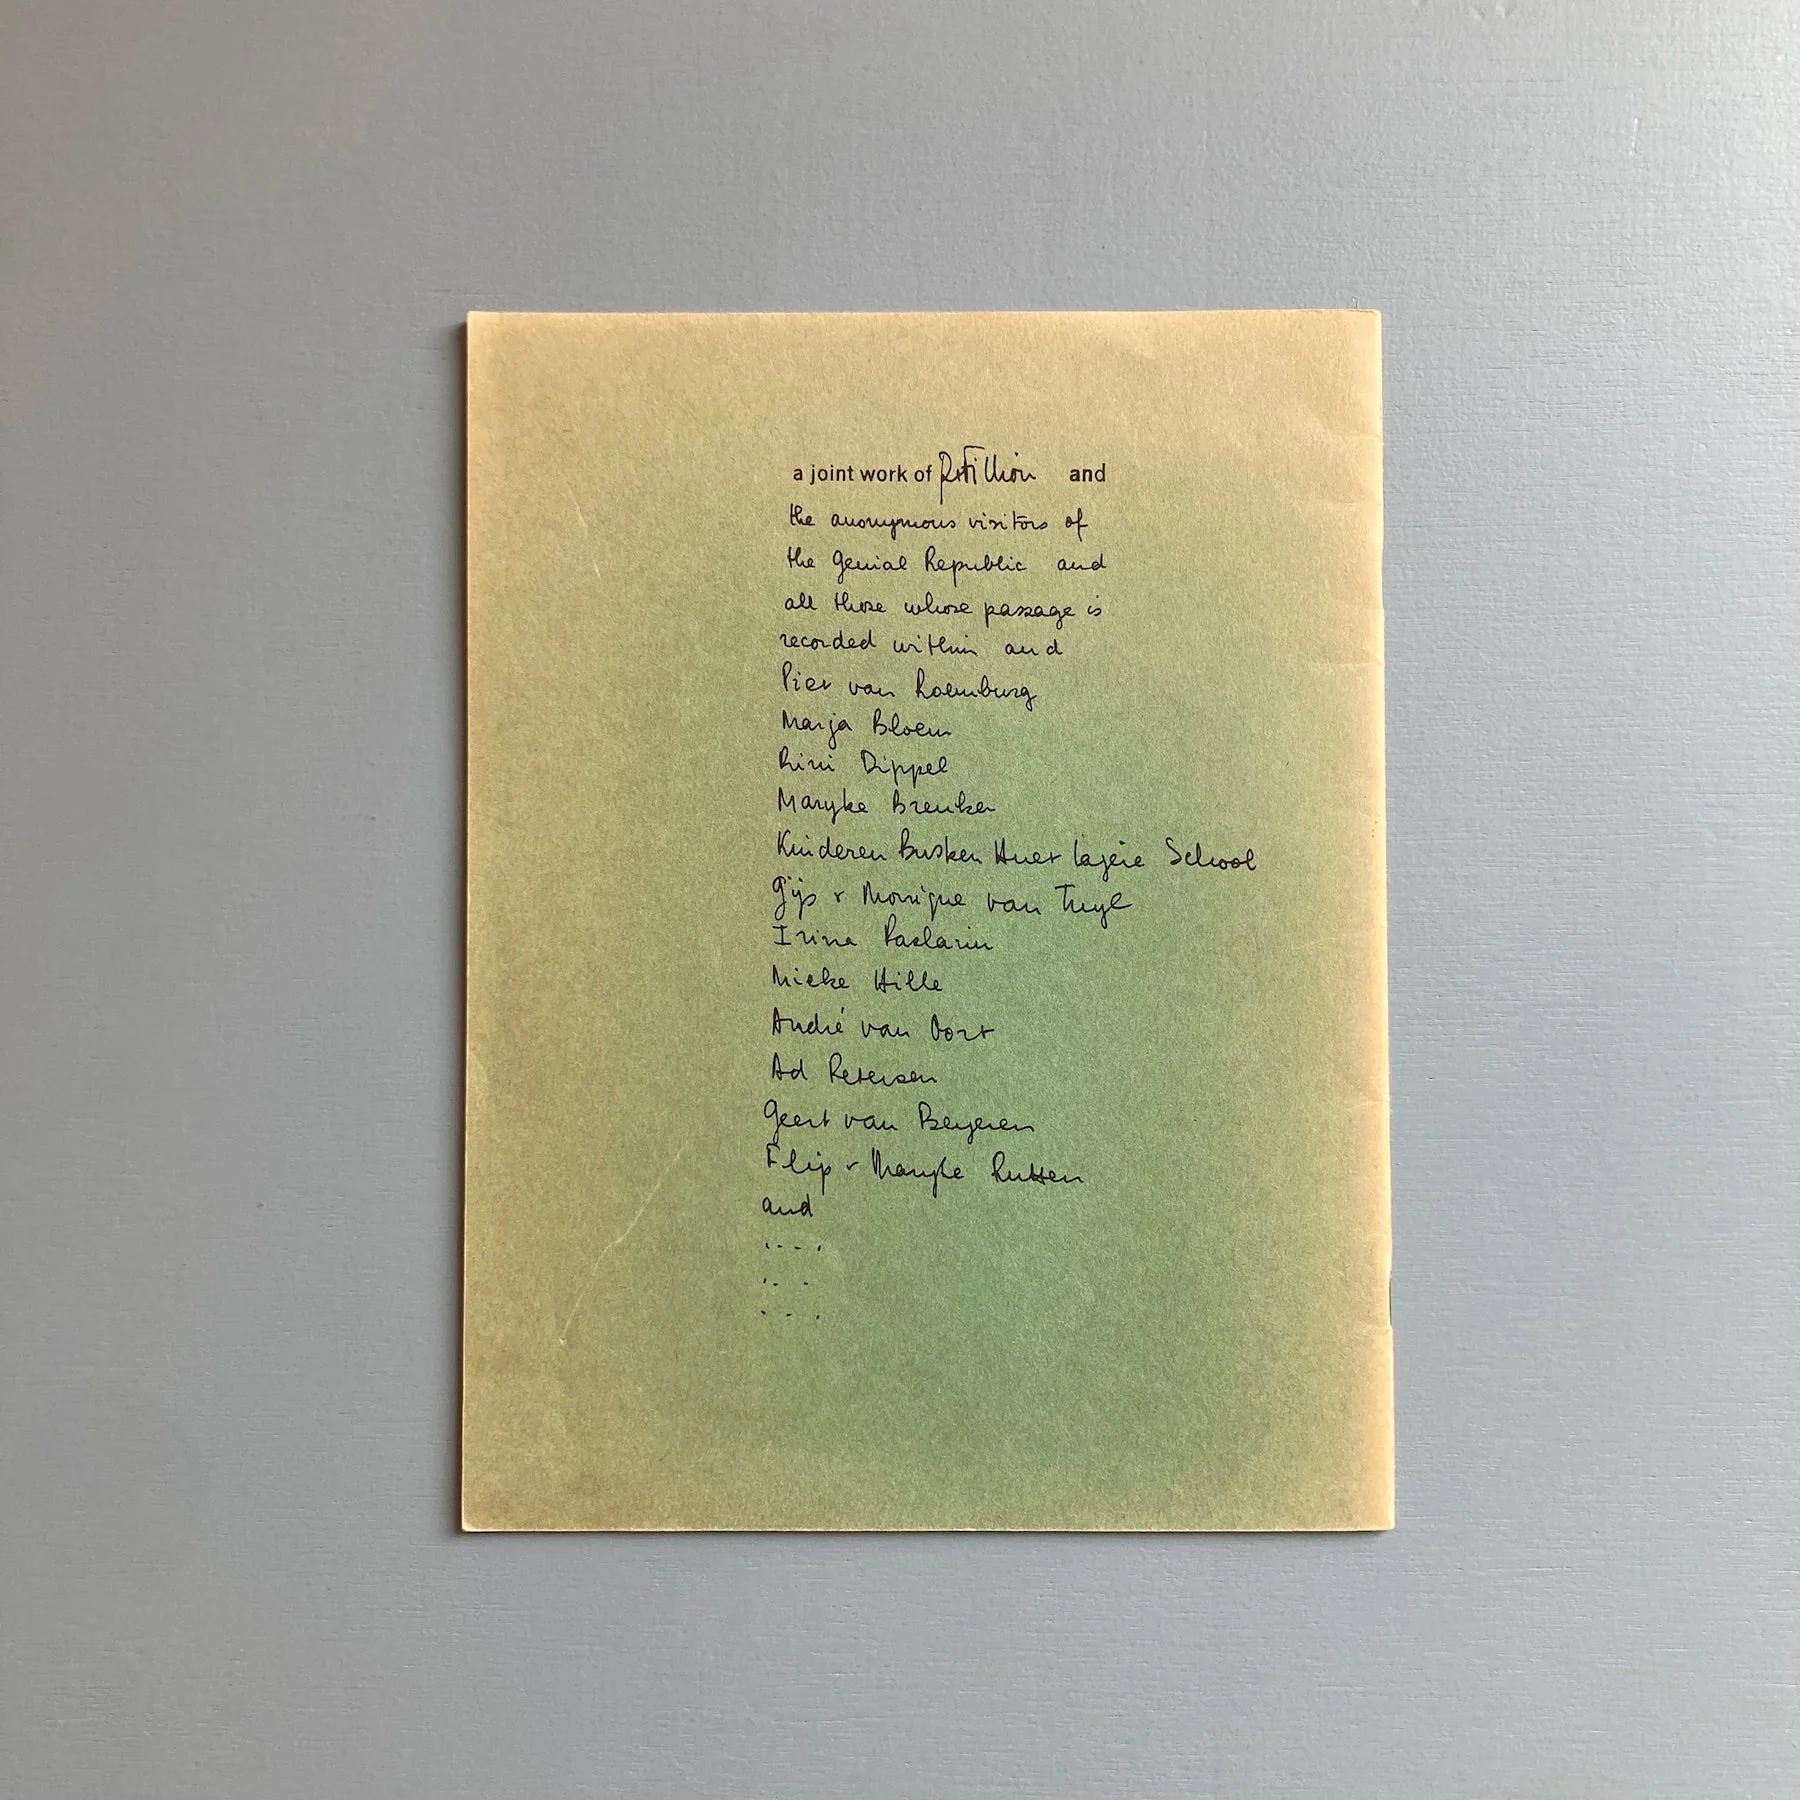 a joint work of R. Filliou and
the anonymous visitors of
the Genial Republic and
all those whose passage is
recorded within and
Piet van
Marja Bloem
Rini Dippel
Maryke
Kinderen Busken Huet lagere School
Gijs & Monique van Tuyl
Irina
Mieke Hille
André van Oort
Ad Petersen
Geert van Beyeren
Flip & Maryke Rutten
and
....
...
....